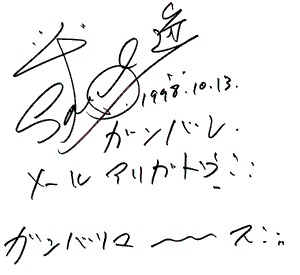 1998.10.13.
ガンバレ.
メール アリガトウ
ガンバリマ〜〜ス